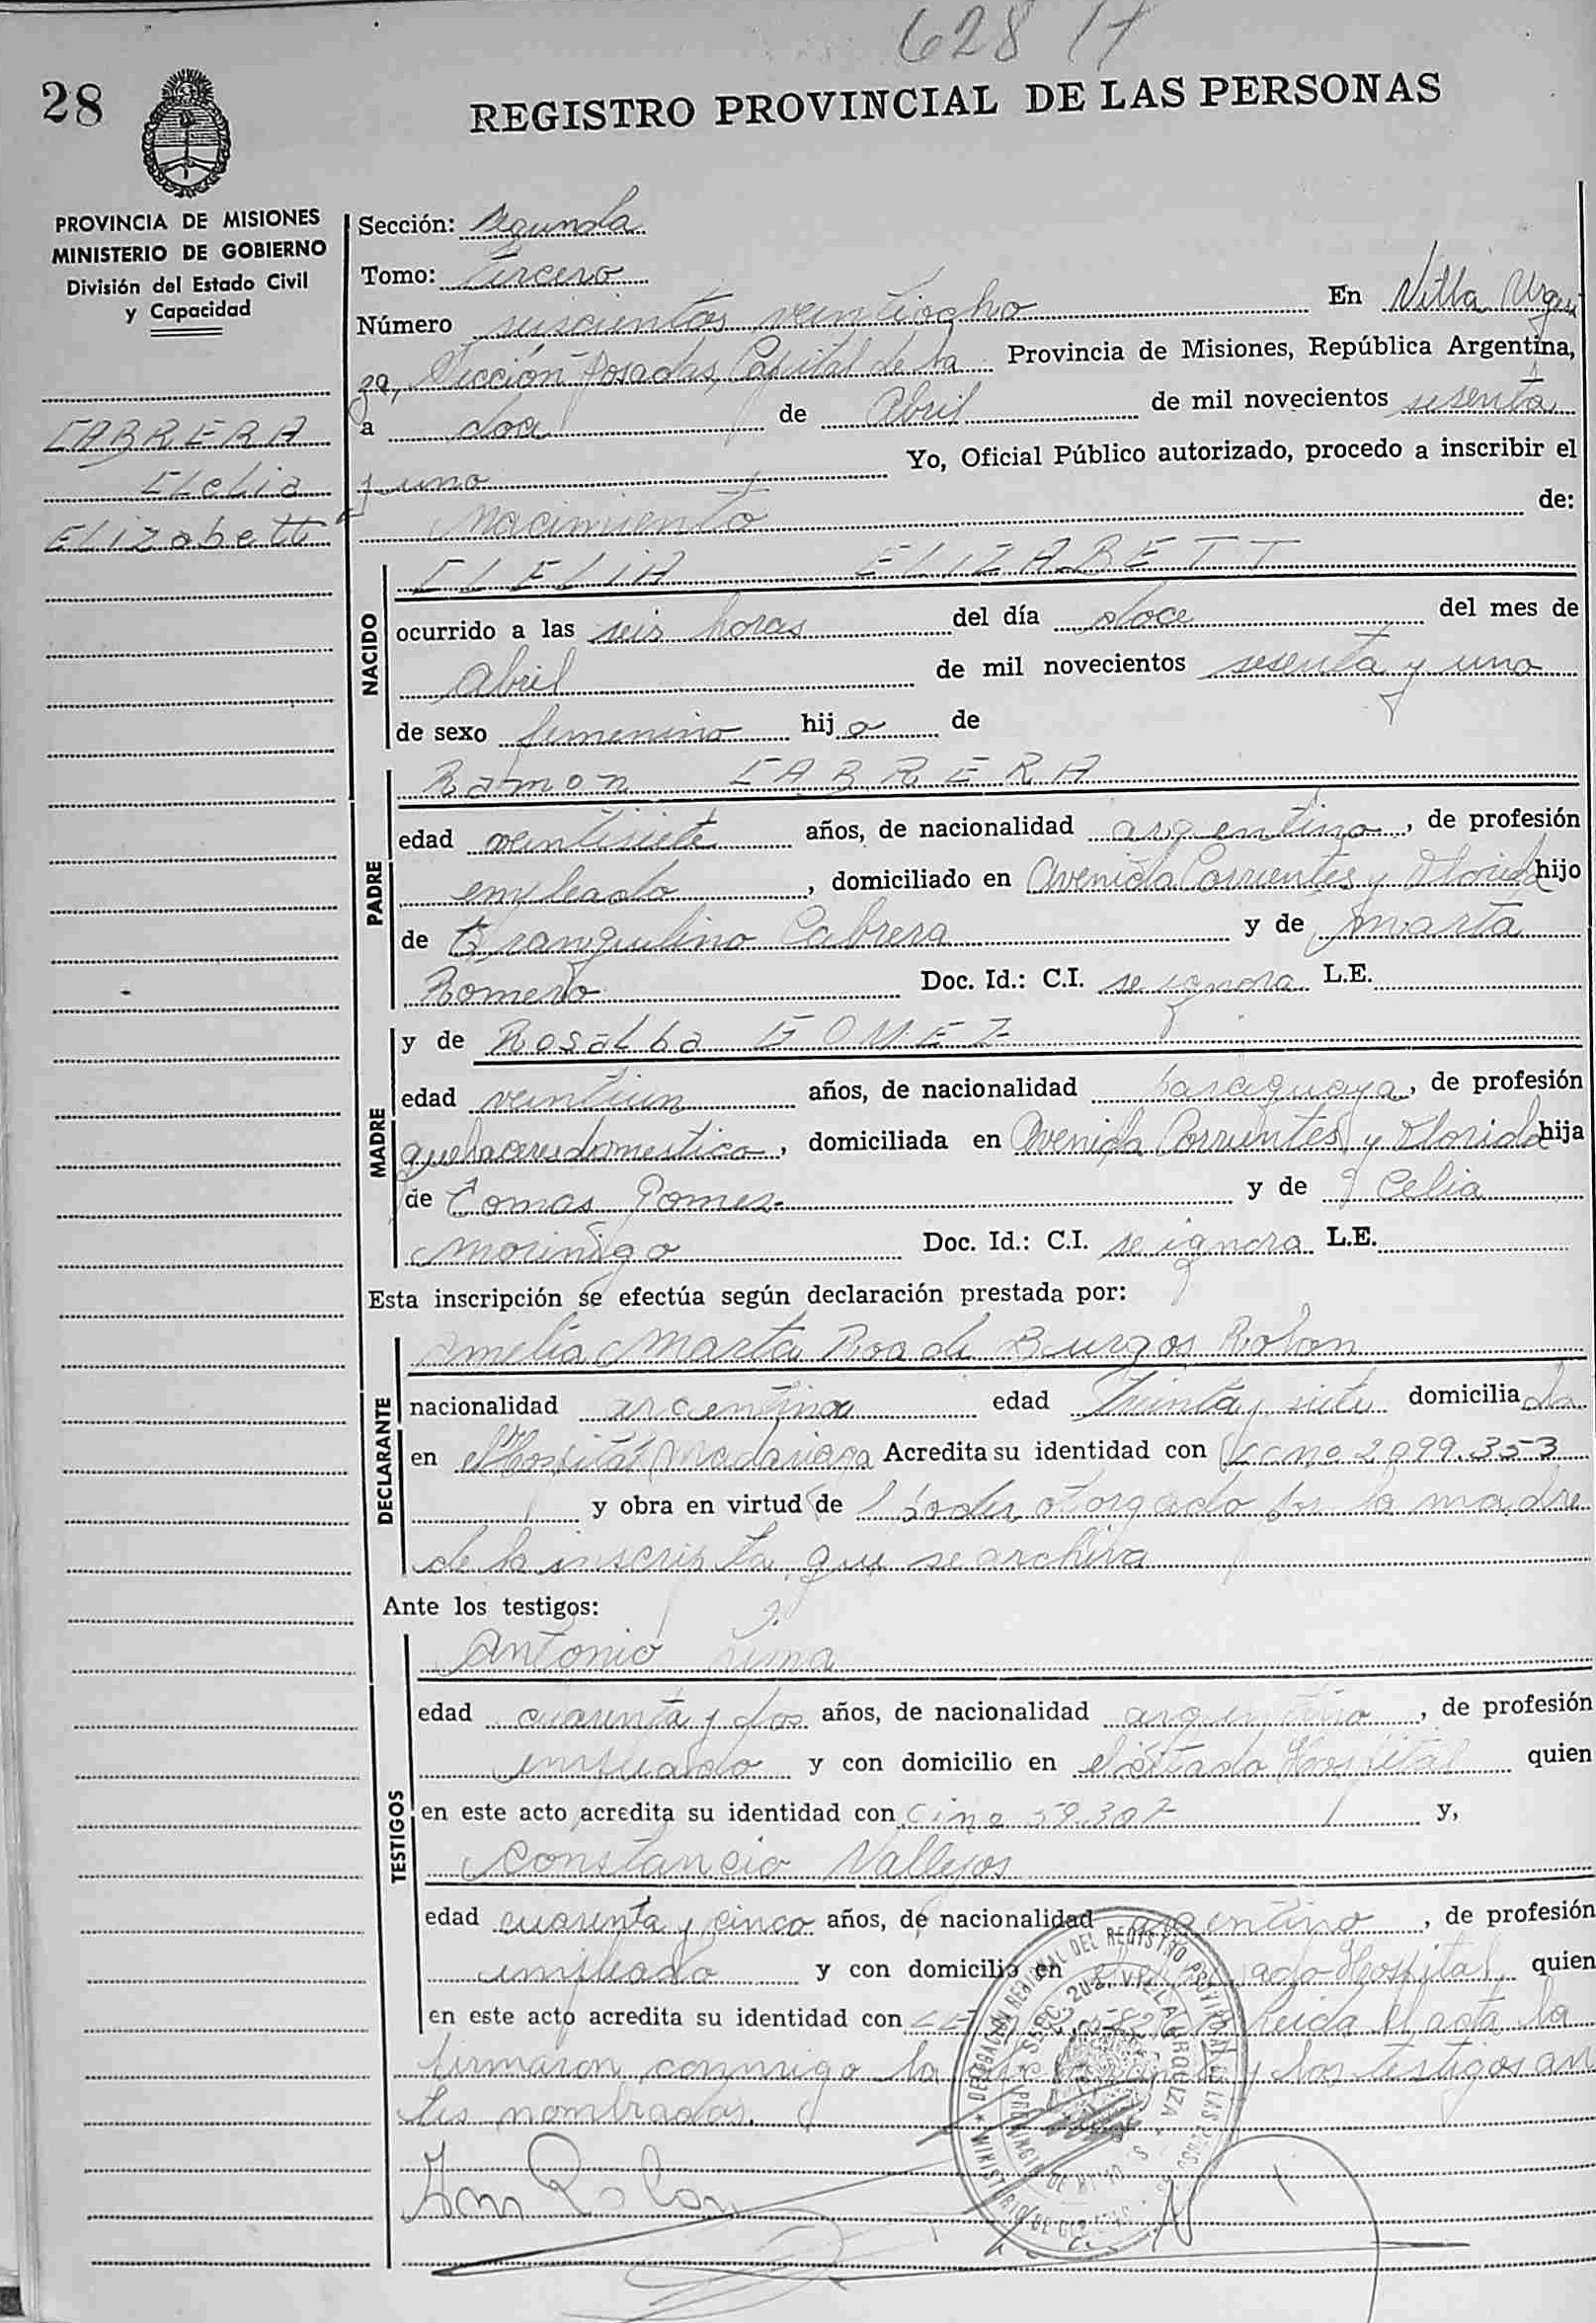 628
28
REGISTRO PROVINCIAL DE LAS PERSONAS
PROVINCIA DE MISIONES
MINISTERIO DE GOBIERNO
División del Estado Civil
y Capacidad
CABRERA
CLELIA
ELIZABETT
Sección: Segunda
Tomo: Tercero
Número seiscientos veintiocho En Villa Urqui
za, Sección Posadas, Capital de la Provincia de Misiones, República Argentina,
a de Abril de mil novecientos sesenta
y uno Yo, Oficial Público autorizado, procedo a inscribir el
Nacimiento de:
NACIDO
CLELIA ELIZABETT
ocurrido a las seis horas del día doce del mes de
Abril de mil novecientos sesenta y uno
de sexo femenino hija de
PADRE
Ramon CABRERA
edad veintisiete años, de nacionalidad argentino, de profesión
empleado, domiciliado en Avenida Corrientes y Florida hijo
de Tranquilino Cabrera y de Marta
Romero Doc. Id.: C.I. se ignora L.E.
y de Rosalba GOMEZ
MADRE
edad veintiun años, de nacionalidad paraguaya, de profesión
quehaceres domestico, domiciliada en Avenida Corrientes y Florida hija
de Tomas Gomez y de Celia
Morinigo Doc. Id.: C.I. se ignora L.E.
Esta inscripción se efectúa según declaración prestada por:
DECLARANTE
Amelia Marta Roa de Burgos Rolon
nacionalidad argentina edad treinta y siete domiciliada
en el Hospital Madariaga Acredita su identidad con LC no 2.099.353
y obra en virtud de poder otorgado por la madre
de la inscripta que se archiva
Ante los testigos:
TESTIGOS
Antonio Lima
edad cuarenta y dos años, de nacionalidad argentino, de profesión
empleado y con domicilio en el citado Hospital quien
en este acto acredita su identidad con Ci no 59.307 y,
Constancio Vallejos
edad cuarenta y cinco años, de nacionalidad argentino, de profesión
empleado y con domicilio en el citado Hospital quien
en este acto acredita su identidad con LE Leida el acta la
firmaron conmigo la declarante y los testigos an
tes nombrados.
DELEGACIÓN REGIONAL DEL REGISTRO PROVINCIAL DE LAS PERSONAS
SECC. 2da. VILLA URQUIZA
PROVINCIA DE MISIONES
MINISTERIO DE GOBIERNO
Rolon